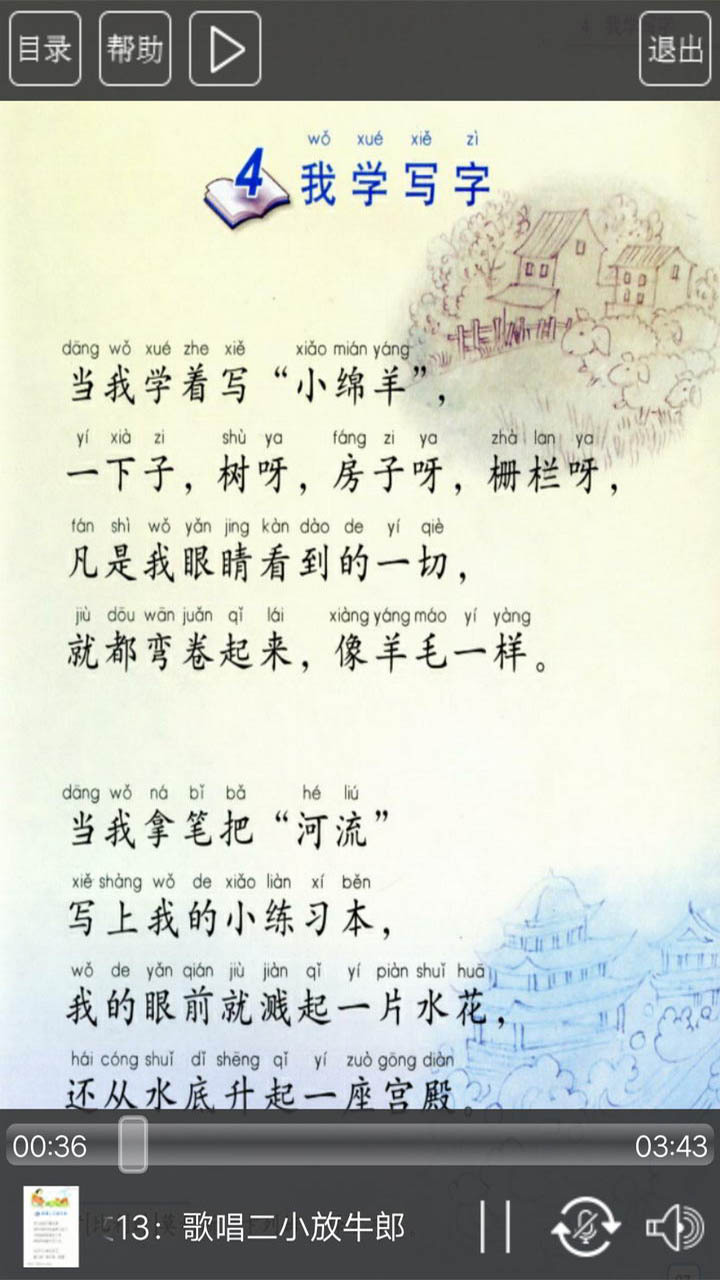 目录 帮助 退出
wǒ xué xiě zì
4 我学写字
dāng wǒ xué zhe xiě xiǎo mián yáng
当我学着写“小绵羊”，
yí xià zi shù ya fáng zi ya zhà lan ya
一下子，树呀，房子呀，栅栏呀，
fán shì wǒ yǎn jing kàn dào de yí qiè
凡是我眼睛看到的一切，
jiù dōu wān juǎn qǐ lái xiàng yáng máo yí yàng
就都弯卷起来，像羊毛一样。
dāng wǒ ná bǐ bǎ hé liú
当我拿笔把“河流”
xiě shàng wǒ de xiǎo liàn xí běn
写上我的小练习本，
wǒ de yǎn qián jiù jiàn qǐ yí piàn shuǐ huā
我的眼前就溅起一片水花，
hái cóng shuǐ dǐ shēng qǐ yí zuò gōng diàn
还从水底升起一座宫殿。
00:36 03:43
13：歌唱二小放牛郎